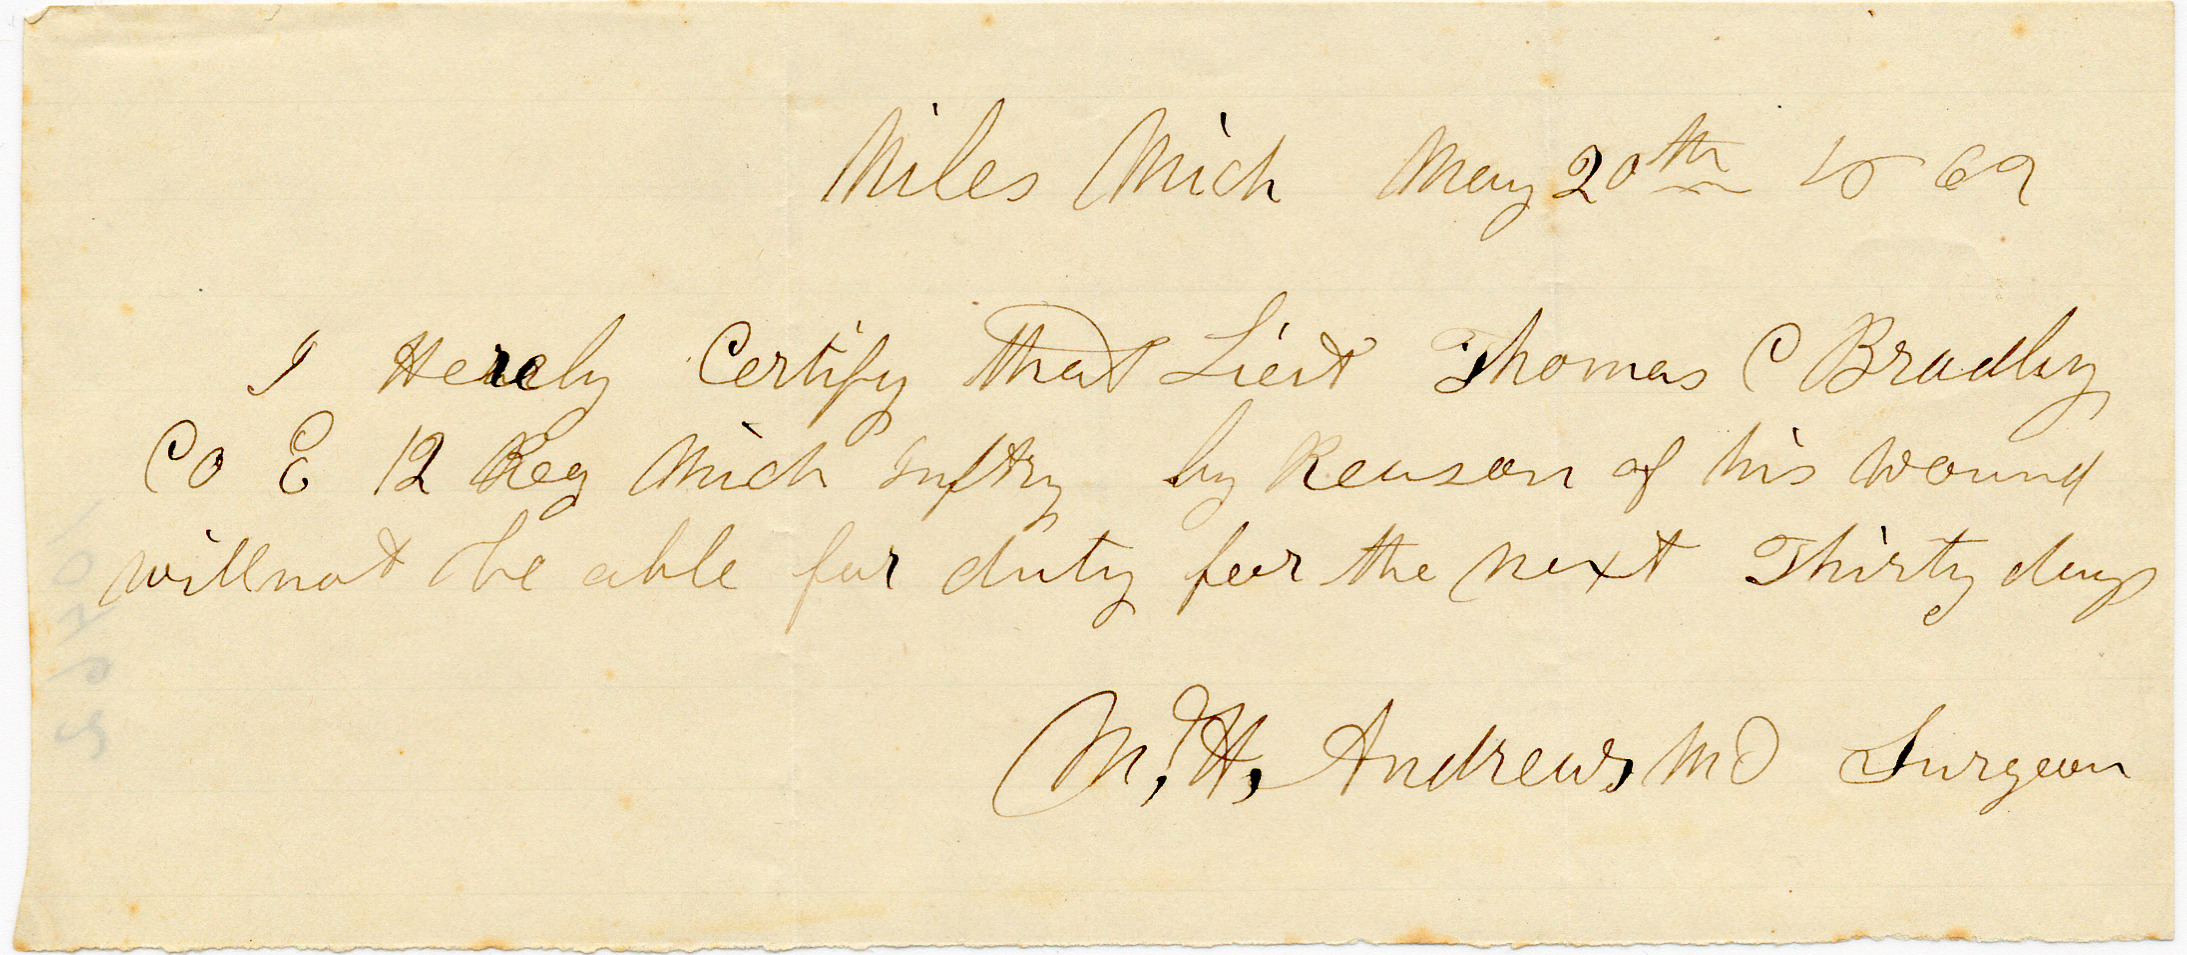 Niles Mich May 20th 18 62
I Hereby Certify that Lieut Thomas C Bradley
Co E 12 Reg Mich Inftry by Reason of his wound
will not be able for duty for the next Thirty days
M, H, Andrews MD Surgeon